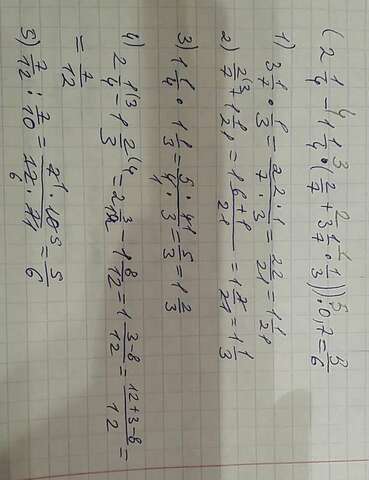 (2 1/4 - 1 1/4 · (2/7 + 3 1/7 · 1/3)) : 0,7 = 5/6
1) 3 1/7 · 1/3 = 22 · 1 / 7 · 3 = 22/21 = 1 1/21
2) 2/7 + 1 1/21 = 1 6+1/21 = 1 7/21 = 1 1/3
3) 1 1/4 · 1 1/3 = 5 · 4 / 4 · 3 = 5/3 = 1 2/3
4) 2 1/4 - 1 2/3 = 2 3/12 - 1 8/12 = 1 3-8/12 = 12+3-8/12 =
= 7/12
5) 7/12 : 7/10 = 7 · 10 / 12 · 7 = 5/6